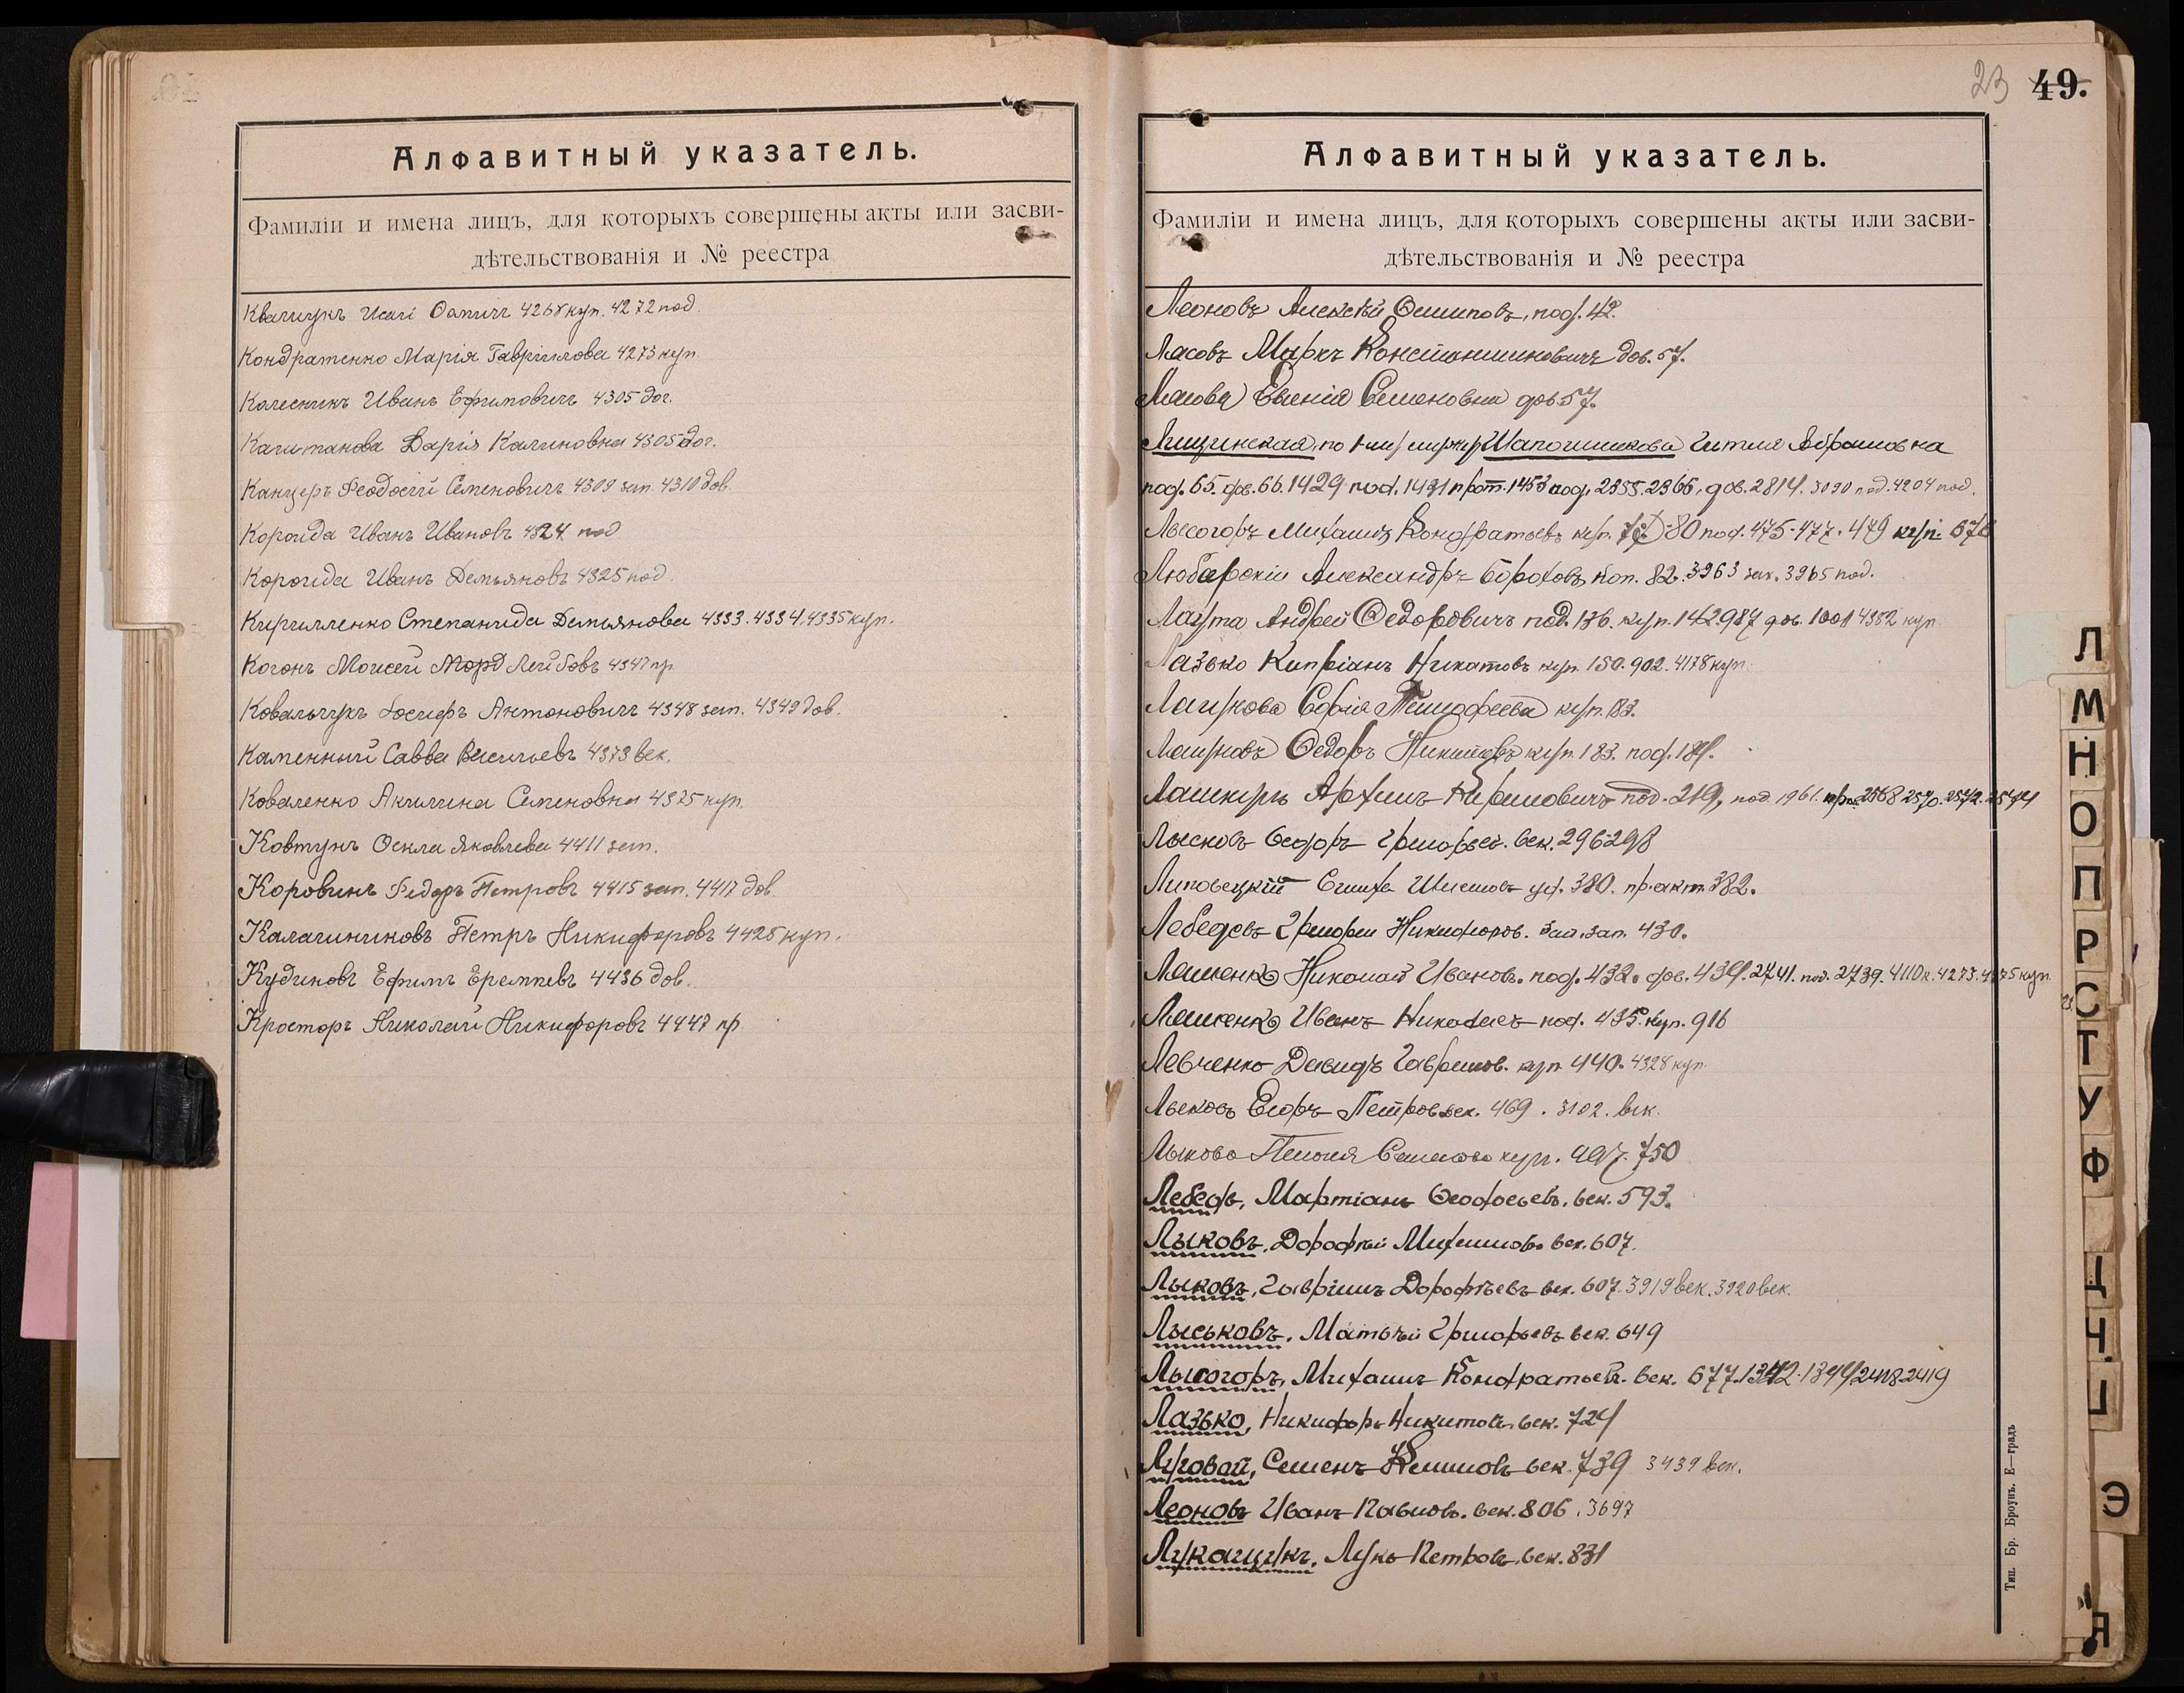 Алфавитный указатель.
Фамиліи и имена лицъ, для которыхъ совершены акты или засви-
дѣтельствованія и № реестра
Квачукъ 4268 куп. 4272 под.
Кондратенко Марія Гавріилова 4273 куп.
Колесникъ Иванъ Ефимовичъ 4305 дог.
Капитанова Дарія Калиновна 4305 дог.
Канцеръ Феодосій Семеновичъ 4309 зап. 4310 дов.
Короида Иванъ Ивановъ 4324 под
Короида Иванъ Демьяновъ 4325 под.
Кириленко Степанида Демьянова 4333. 4334. 4335 куп.
Когонъ Моисей Морд Лейбовъ 4347 пр.
Ковальчукъ Іосифъ Антоновичъ 4348 зап. 4349 дов.
Каменный Савва Васильевъ 4373 век.
Коваленко Акилина Семеновна 4375 куп.
Ковтунъ Оекла Яковлева 4411 зап.
Коровинъ Федоръ Петровъ 4415 зап. 4417 дов.
Калачиниковъ Петръ Никифоровъ 4428 куп.
Кудиновъ Ефимъ Еремпевъ 4436 дов.
Кросторъ Николай Никифоровъ 4447 пр
23 49.
Алфавитный указатель.
Фамиліи и имена лицъ, для которыхъ совершены акты или засви-
дѣтельствованія и № реестра
Леоновъ Алексѣй Осиповъ, под. 42.
Лясовъ Маркъ Константиновичъ дов. 57.
Евгенія Семеновна дов 57.
Лищинская, по Шапошникова Гитля Абрамовна
под. 65. дов. 66. 1429 под. 1431 прот. 1453 под. 2355. 2366, дов. 2814. 3090 под. 4204 под.
Лысогоръ Михаилъ Кондратьевъ куп. 80 под. 475-477. 479 куп. 676
Любарскій Александръ коп. 82. 3963 зак. 3965 под.
Лаута Андрей Федоровичъ под. 136. куп. 142. 987 дов. 1001 4382 куп
Лазько Кипріанъ Никитовъ куп. 150. 902. 4178 куп.
Лашкова Софія Тимофеева куп. 183.
Лашковъ Федоръ Никитовъ куп. 183. под. 184.
Лашкулъ Архипъ Кириловичъ под. 219, под. 1961. 2568 2570. 2572. 2574
Лысковъ Федоръ Григорьев. век. 296-298
Липовецкій 380. пр. акт. 382.
Лебедевъ Григорій Никифоров. зап. 430.
Ляшенко Николай Иванов. под. 432. дов. 434. 2741. под. 2739. 4110 к. 4273. 4275 куп.
Ляшенко Иванъ Николаевъ под. 435. куп. 916
Левченко Давидъ Гаврилов. куп. 440. 4328 куп.
Егоръ Петров век. 469. 3102. век.
Лыкова куп. 750
Лебедь, Мартіанъ Феодосьевъ, век. 593.
Лыковъ, Дорофей Михайлов. век. 607.
Лыковъ, Гавріилъ Дорофѣевъ век. 607. 3919 век. 3920 век.
Лыськовъ, Матвѣй Григорьевъ век. 649
Лысогоръ, Михаилъ Кондратьев. век. 677. 1342. 1344 2418 2419
Лазько, Никифоръ Никитовъ, век. 724
Луговой, Семенъ Климовъ век. 739 3439 век.
Леоновъ Иванъ Павловъ. век. 806. 3697
Лукащукъ, Лука Петровъ, век. 831
Тип. Бр. Броунъ. Е—градъ
Л
М
Н
О
П
Р
С
Т
У
Ф
Ц
Ч
Э
Я